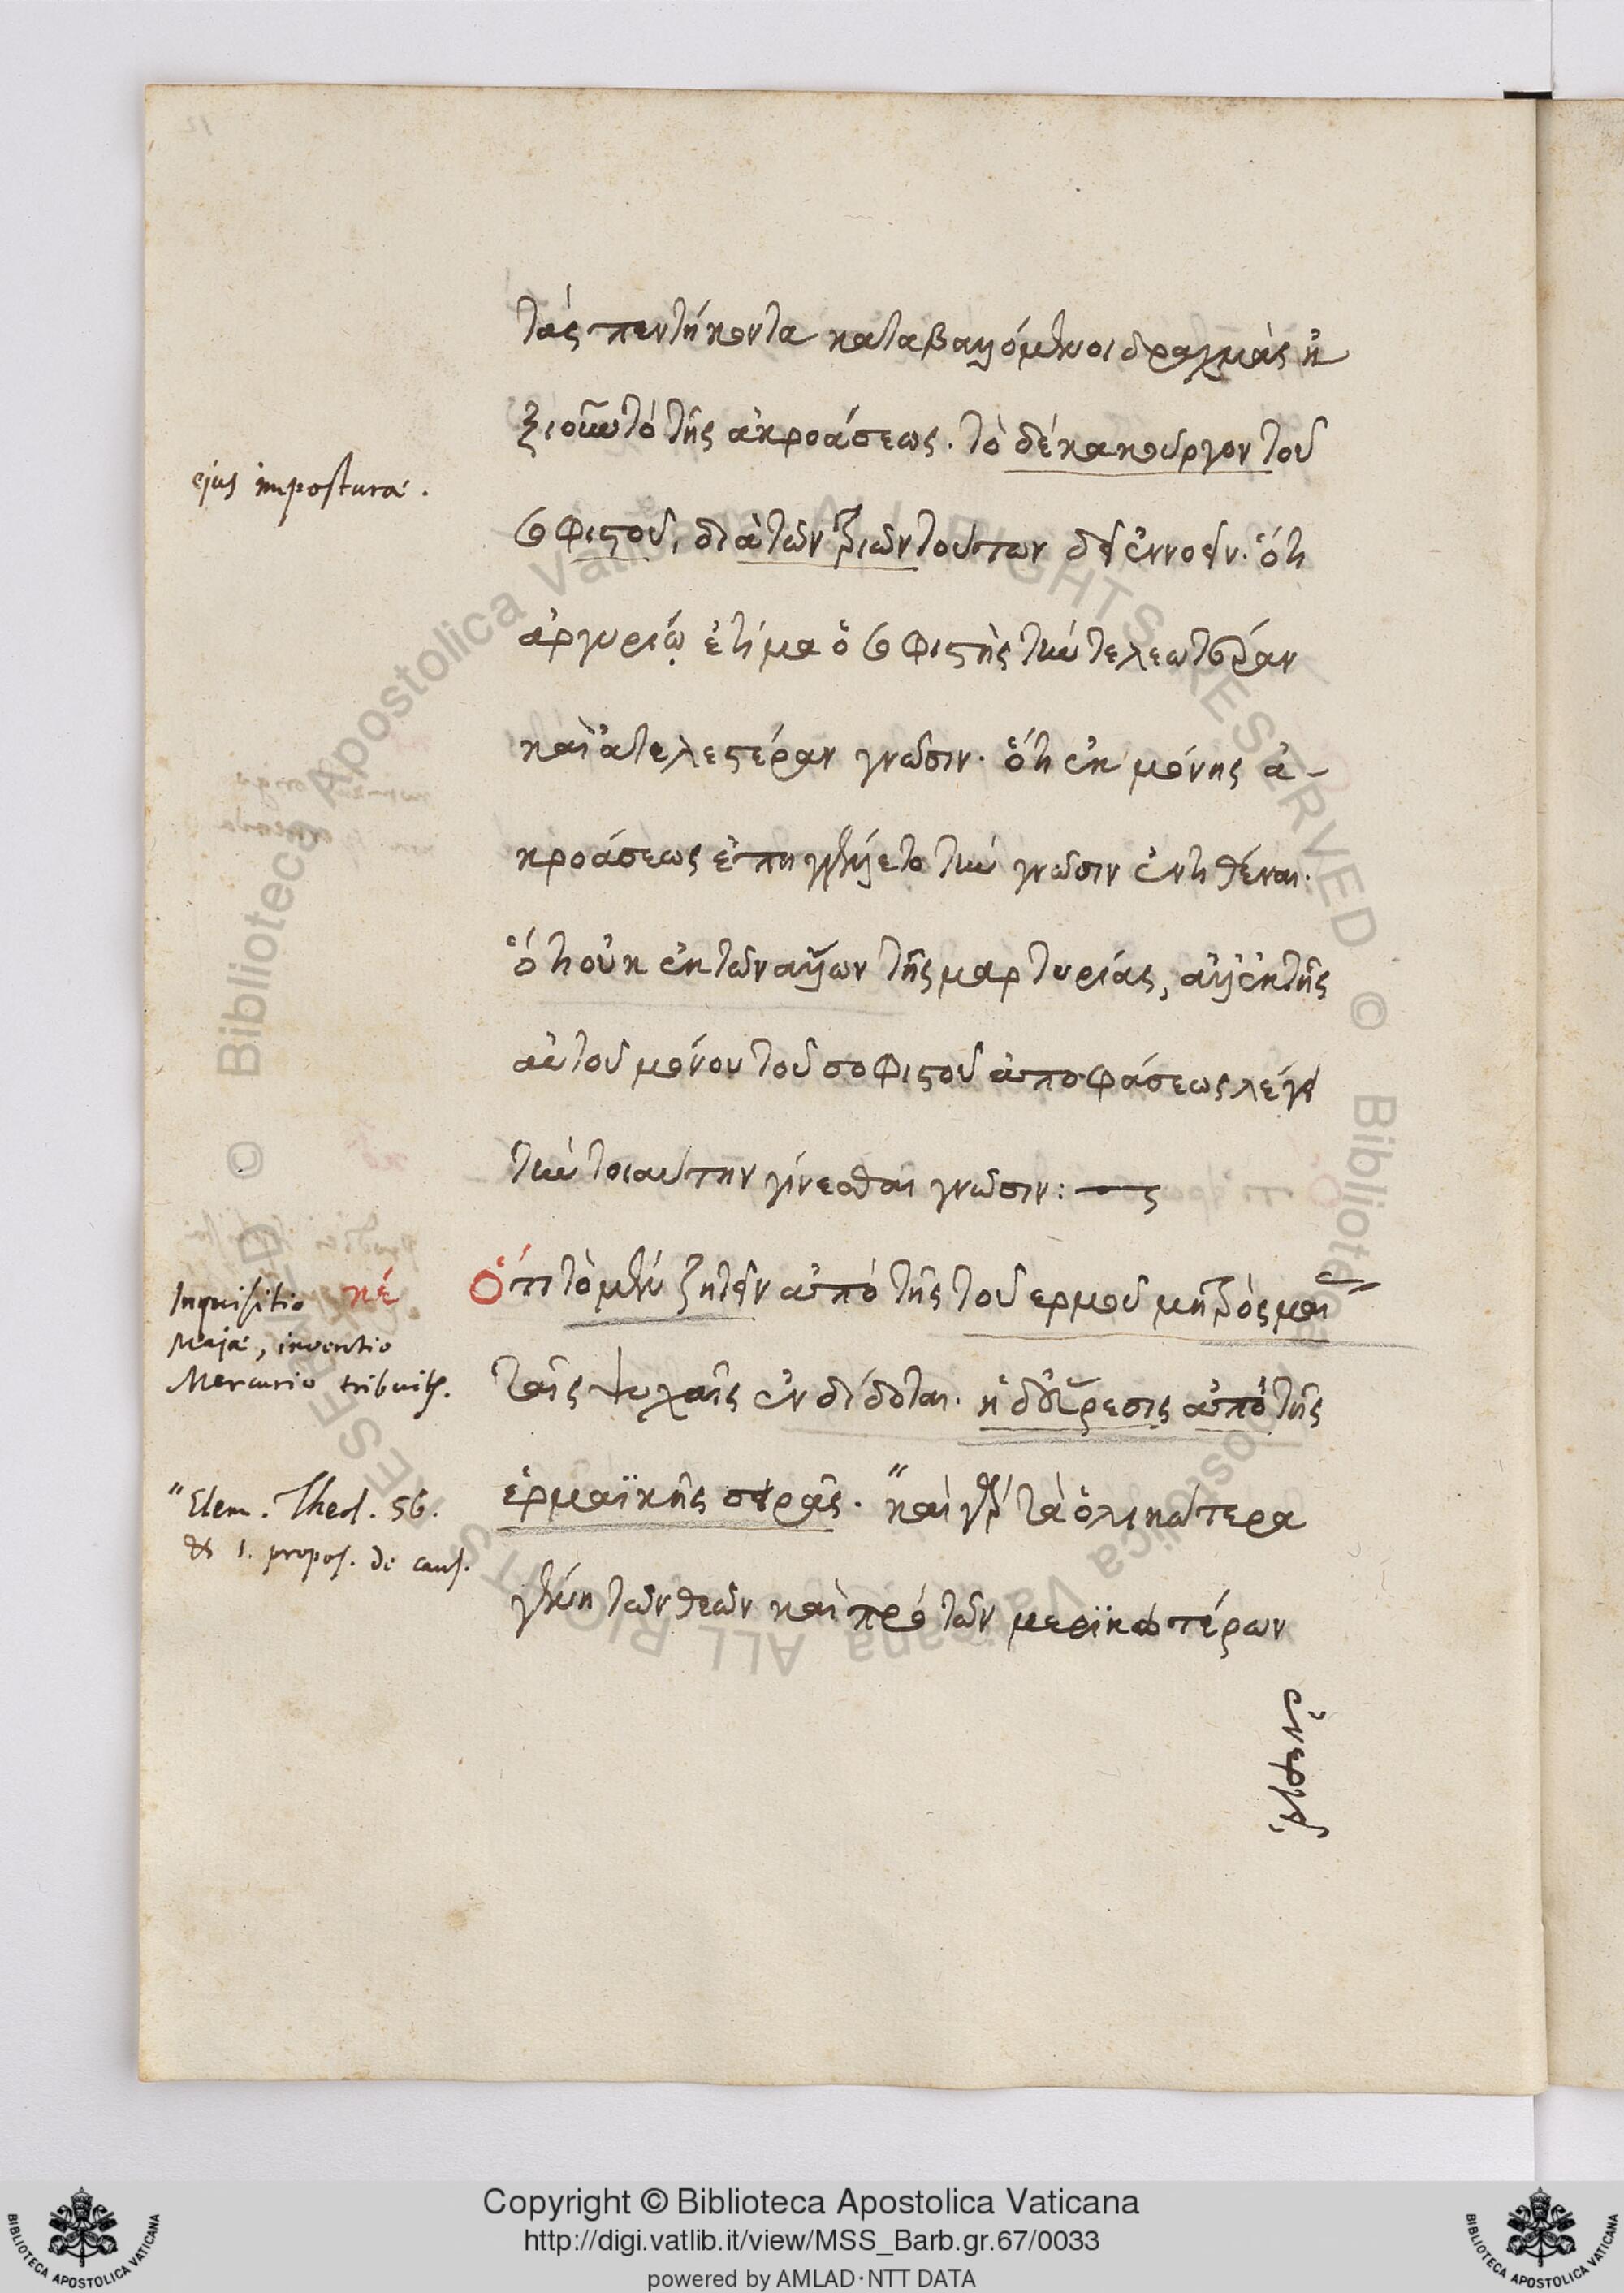 τὰς πεντήκοντα καταβαλλόμενοι δραχμὰς ἠ
ξιοῦντο τῆς ἀκροάσεως. τὸ δὲ κακουργον τοῦ
σοφιστοῦ, διὰ τῶν τριῶν τούτων δεῖ ἐννοεῖν. ὅτι
ἀργυρίῳ ἐτίμα ὁ σοφιστὴς τὴν τελεωτέραν
καὶ ἀτελεστέραν γνῶσιν. ὅτι ἐκ μόνης ἀ-
κροάσεως ἐπηγγέλλετο τὴν γνῶσιν ἐντιθέναι.
ὅτι οὐκ ἐκ τῶν ἄλλων τῆς μαρτυρίας, ἀλλ' ἐκ τῆς
αὐτοῦ μόνου τοῦ σοφιστοῦ ἀποφάσεως λέγει
τὴν τοιαύτην γίνεσθαι γνῶσιν:
Ὅτι τὸ μὲν ζητεῖν ἀπὸ τῆς τοῦ ερμοῦ μητρὸς μαί
ταῖς ψυχαῖς ἐνδίδοται. ἡ δὲ εὕρεσις ἀπὸ τῆς
ἑρμαϊκῆς σειρᾶς. " καὶ γὰρ τὰ ὁλικώτερα
γένη τῶν θεῶν καὶ πρὸ τῶν μερϊκωτέρων
ejus impostura.
Inquisitio κέ
Majae, inventio
Mercurio tribuitur.
" Elem. Theol. 56.
& 1. propos. de caus.
© Biblioteca Apostolica Vaticana ALL RIGHTS RESERVED © Biblioteca Apostolica Vaticana ALL RIGHTS RESERVED
Copyright © Biblioteca Apostolica Vaticana
http://digi.vatlib.it/view/MSS_Barb.gr.67/0033
powered by AMLAD·NTT DATA
BIBLIOTECA APOSTOLICA VATICANA
BIBLIOTECA APOSTOLICA VATICANA